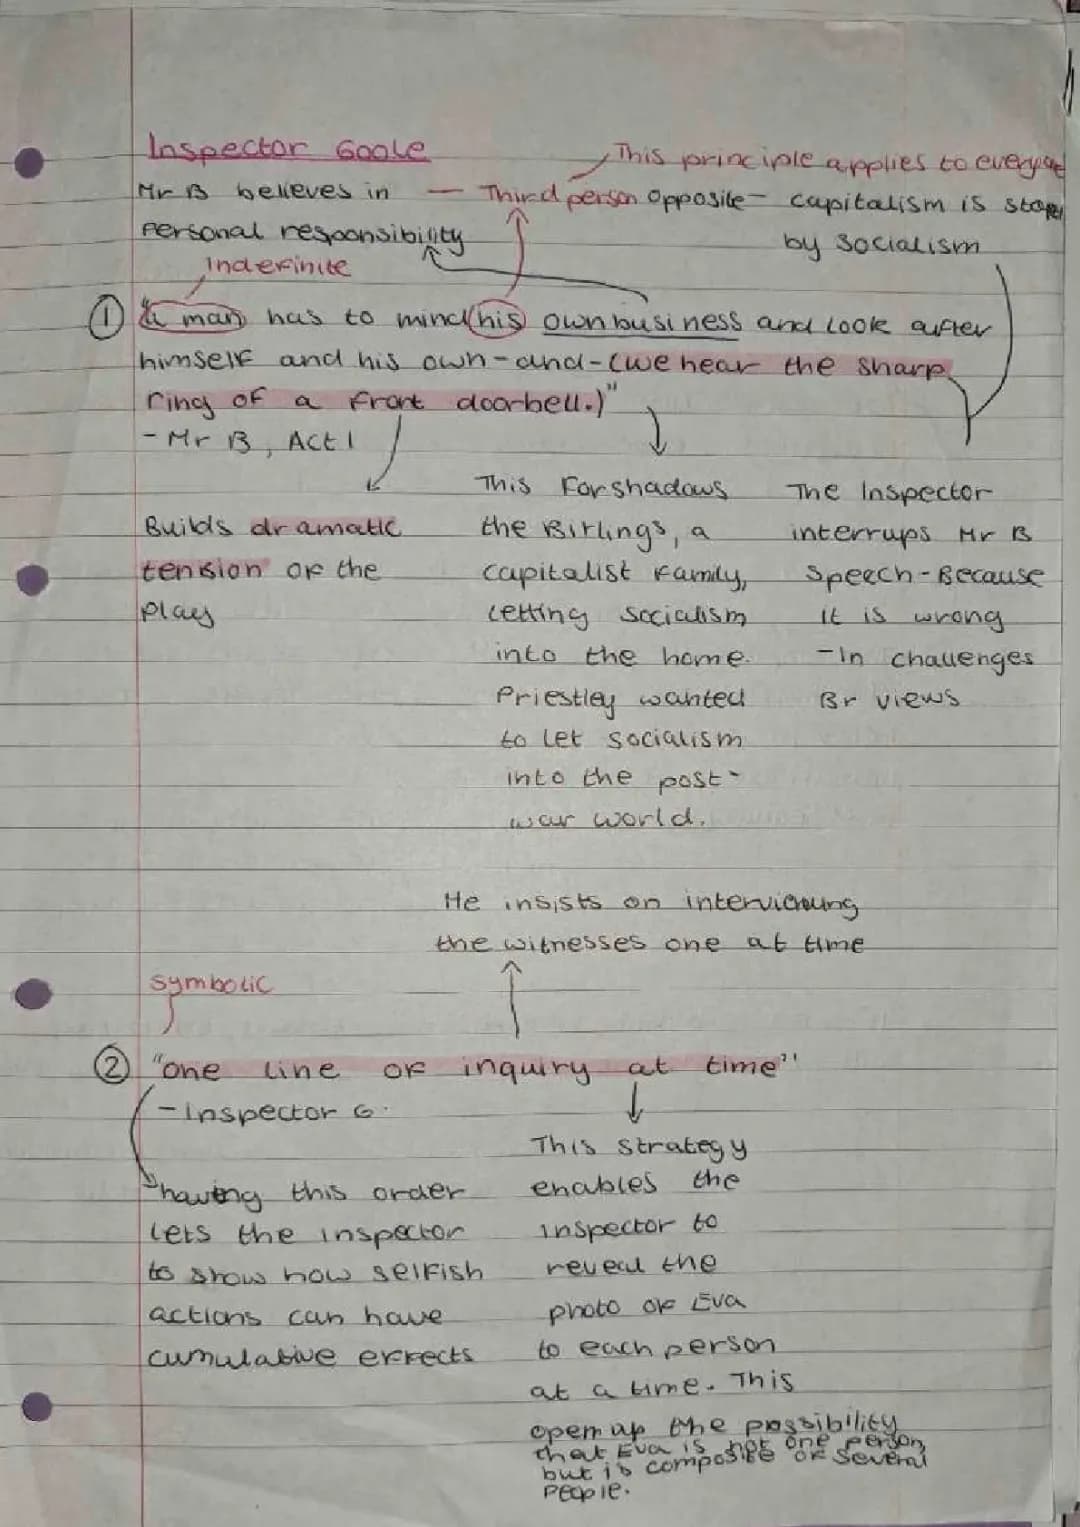 Inspector Goole
This principle applies to everyone
Mr B believes in — Third person opposite - capitalism is stopped
personal responsibility
by socialism
Indefinite
① "a man has to mind his own business and look after
himself and his own-and-(we hear the sharp
ring of a front doorbell.)"
- Mr B, Act 1
Builds dramatic
tension of the
play
This Forshadows
the Birlings, a
capitalist family,
letting socialism
into the home.
Priestley wanted
to let socialism
into the post-
war world.
The Inspector
interrups Mr B
Speech - Because
it is wrong
- In challenges
Br views
He insists on interviewing
the witnesses one at time
symbolic
② "one line of inquiry at time"
- Inspector G.
having this order
lets the inspector
to show how selfish
actions can have
cumulative effects
This strategy
enables the
inspector to
reveal the
photo of Eva
to each person
at a time. This
open up the possibility
that Eva is not one person,
but is composite of several
people.